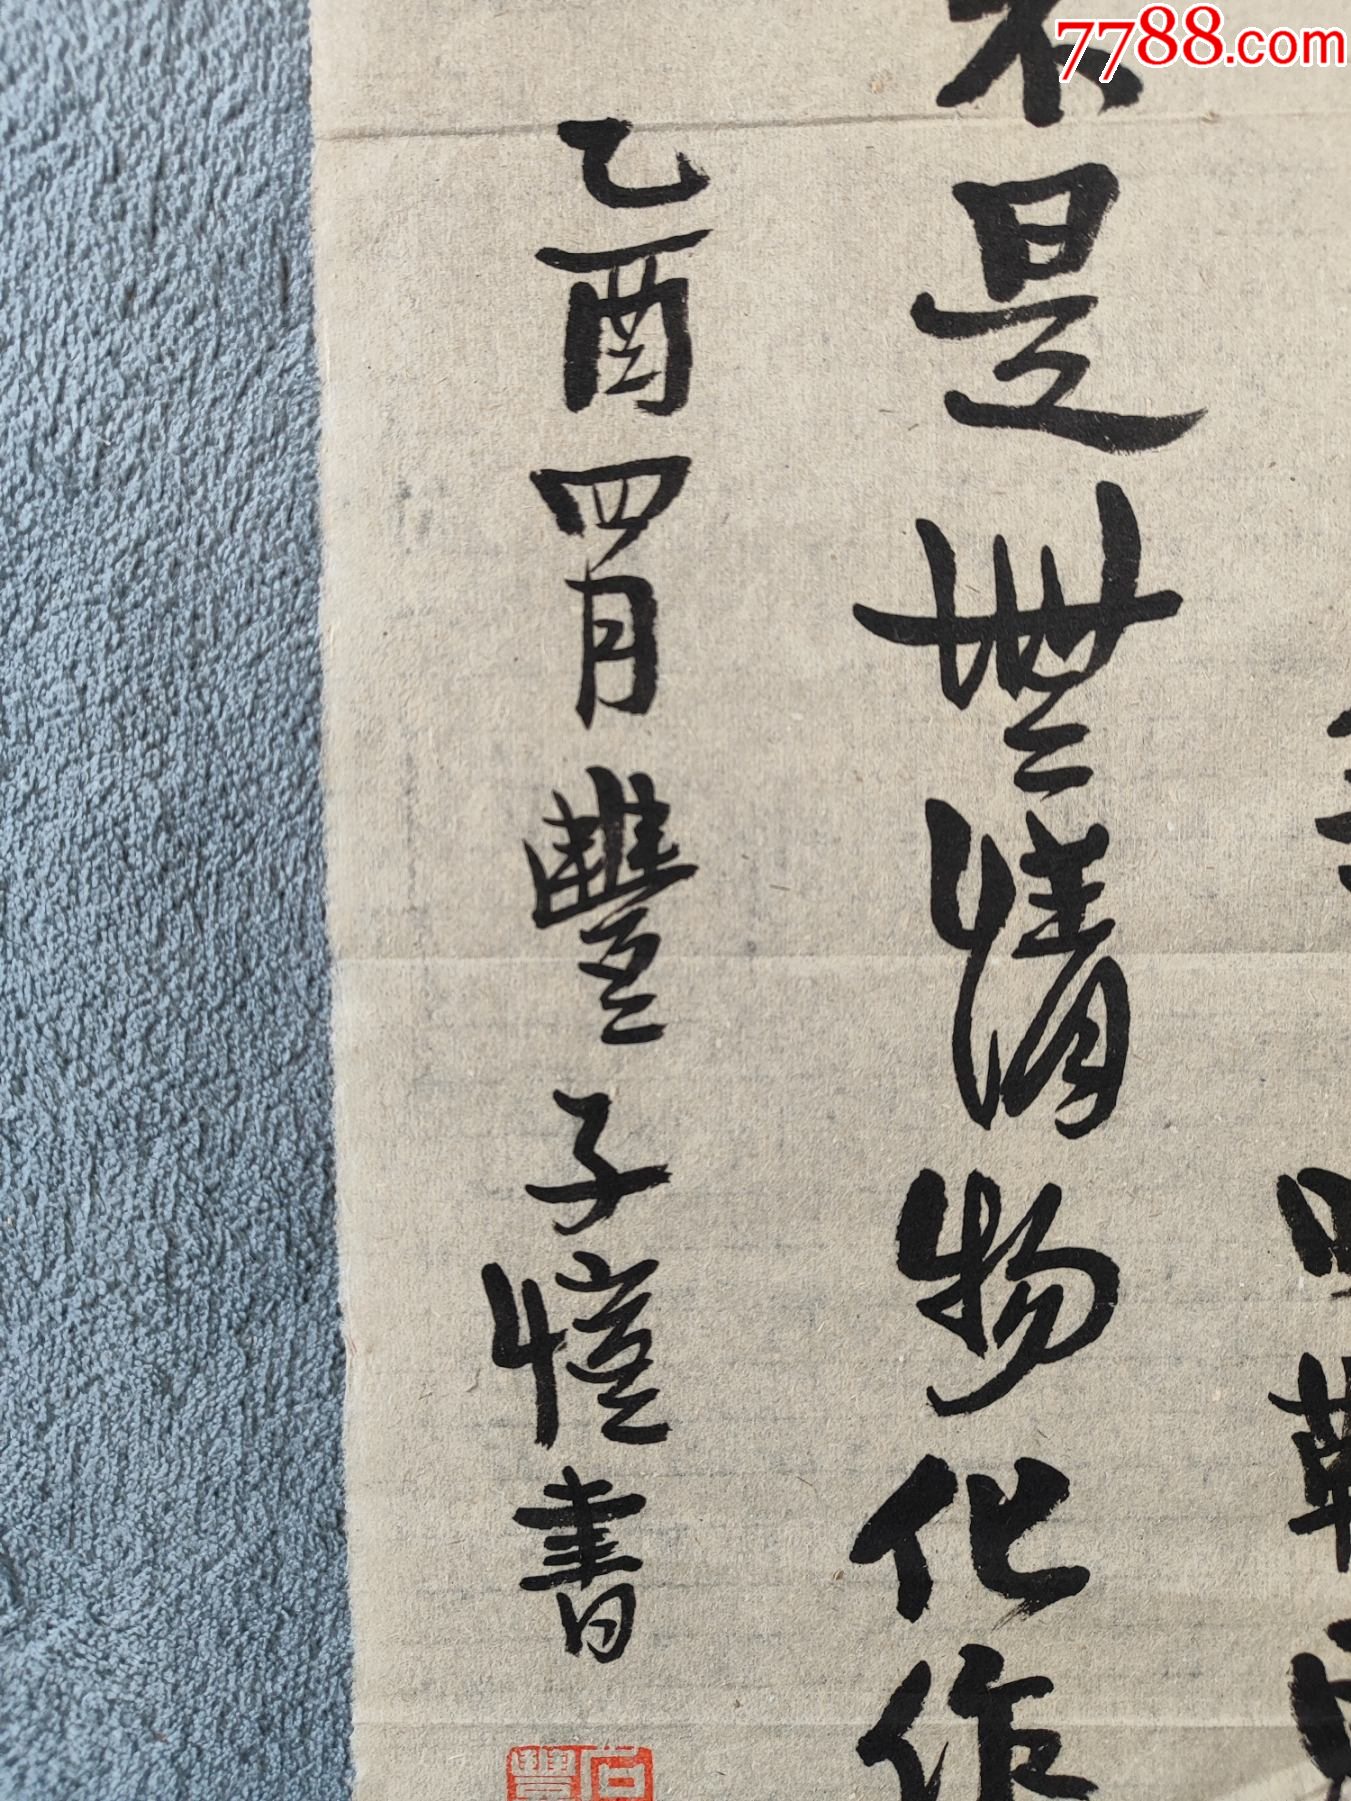 7788.com
不是無情物化作
乙酉四月豐子愷書